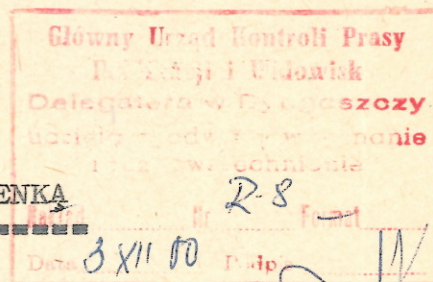 Główny Urząd Kontroli Prasy
Publikacji i Widowisk
Delegatura w Bydgoszczy
udziela zgody na wykonanie
i rozpowszechnienie
ENKĄ
Nr R-8 Format
Data 3 XII 80 Podpis